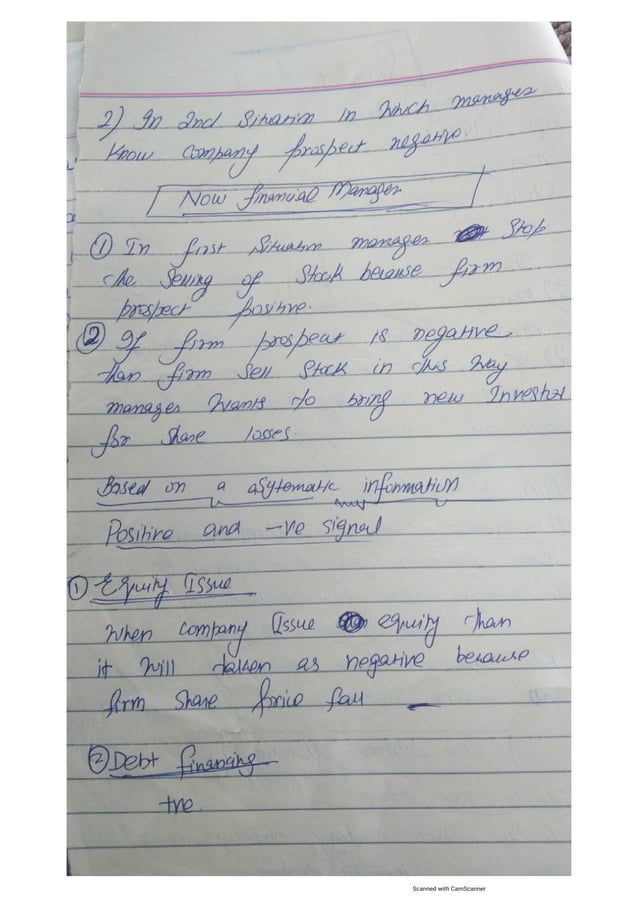 2) In 2nd Situation in which manager
know company prospect negative.
Now financial Manager
① In first situation manager Stop
the Selling of Stock because firm
prospect positive.
② If firm prospect is negative
than firm sell Stock in this way
manager wants to bring new Investor
for share losses.
Based on a asytematic information
Positive and -ve signal
① Equity Issue
When company Issue equity than
it will taken as negative because
firm share price fall —
② Debt financing
+ve
Scanned with CamScanner